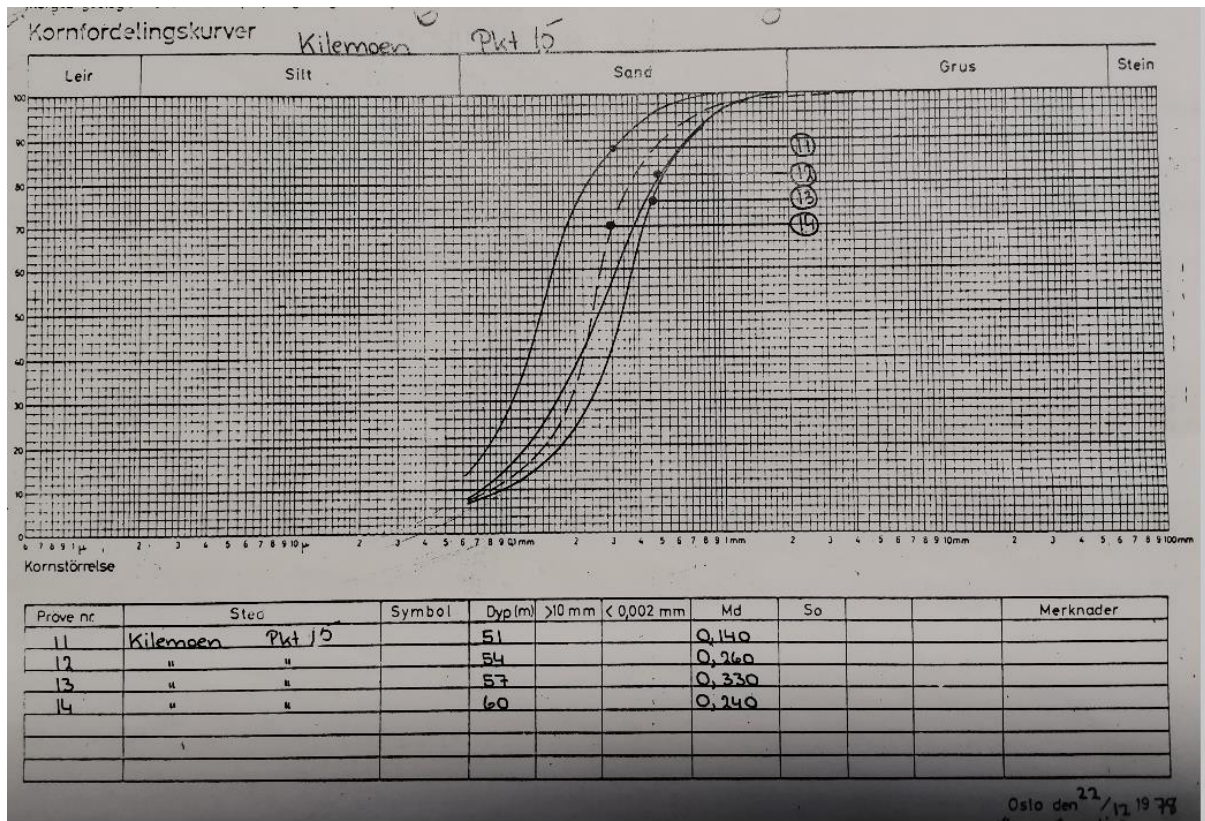 Kornfordelingskurver Kilemoen Pkt 15
Leir Silt Sand Grus Stein
100
90
80
70
60
50
40
30
20
10
0
11
12
13
14
6 7 8 9 1 µ 2 3 4 5 6 7 8 9 10 µ 2 3 4 5 6 7 8 9 0,1 mm 2 3 4 5 6 7 8 9 1 mm 2 3 4 5 6 7 8 9 10mm 2 3 4 5 6 7 8 9 100mm
Kornstörrelse
Prøve nr. Sted Symbol Dyp (m) >10 mm < 0,002 mm Md So Merknader
11 Kilemoen Pkt 15 51 0,140
12 " " 54 0,260
13 " " 57 0,330
14 " " 60 0,240
Oslo den 22/12 1978